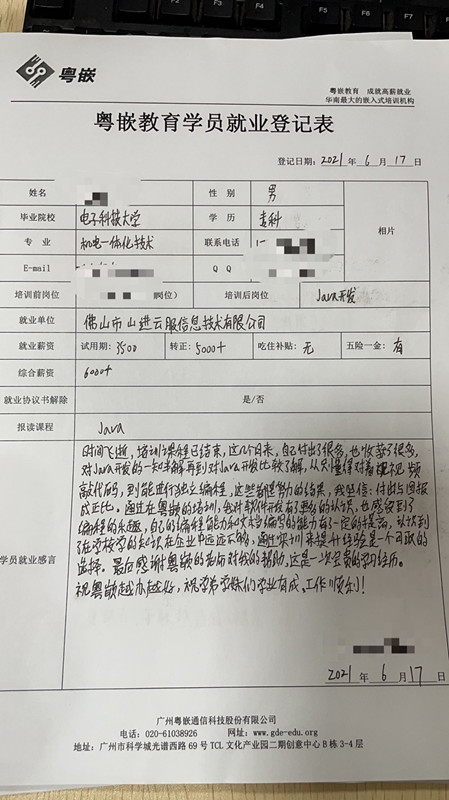 粤嵌
粤嵌教育 成就高薪就业
华南最大的嵌入式培训机构
粤嵌教育学员就业登记表
登记日期：2021年6月17日
姓名 性 别 男
毕业院校 电子科技大学 学 历 专科 相片
专 业 机电一体化技术 联系电话 1-
E-mail Q Q
培训前岗位 岗位） 培训后岗位 Java开发
就业单位 佛山市山进云服信息技术有限公司
就业薪资 试用期：3500 转正：5000+ 吃住补贴：无 五险一金：有
综合薪资 6000+
就业协议书解除 是/否
报读课程 Java
学员就业感言
时间飞逝，培训课程已结束，这几个月来，自己付出了很多，也收获了很多，
对Java开发的一知半解再到对Java开发比较了解，从只懂得对着视频
敲代码，到能进行独立编程，这些都是努力的结果，我坚信：付出与回报
成正比。通过在粤嵌的培训，我对软件开发有了更多的认识，也感受到了
编程的乐趣，自己的编程能力和文档编写的能力有了一定的提高，认识到
了在学校学的知识在企业中远远不够，通过实训来提升经验是一个可取的
选择。最后感谢粤嵌的老师对我的帮助，这是一次宝贵的学习经历。
祝粤嵌越办越好，祝学弟学妹们学业有成、工作顺利！
2021年6月17日
广州粤嵌通信科技股份有限公司
电话：020-61038926 网址：www.gde-edu.org
地址：广州市科学城光谱西路 69 号 TCL 文化产业园二期创意中心 B 栋 3-4 层